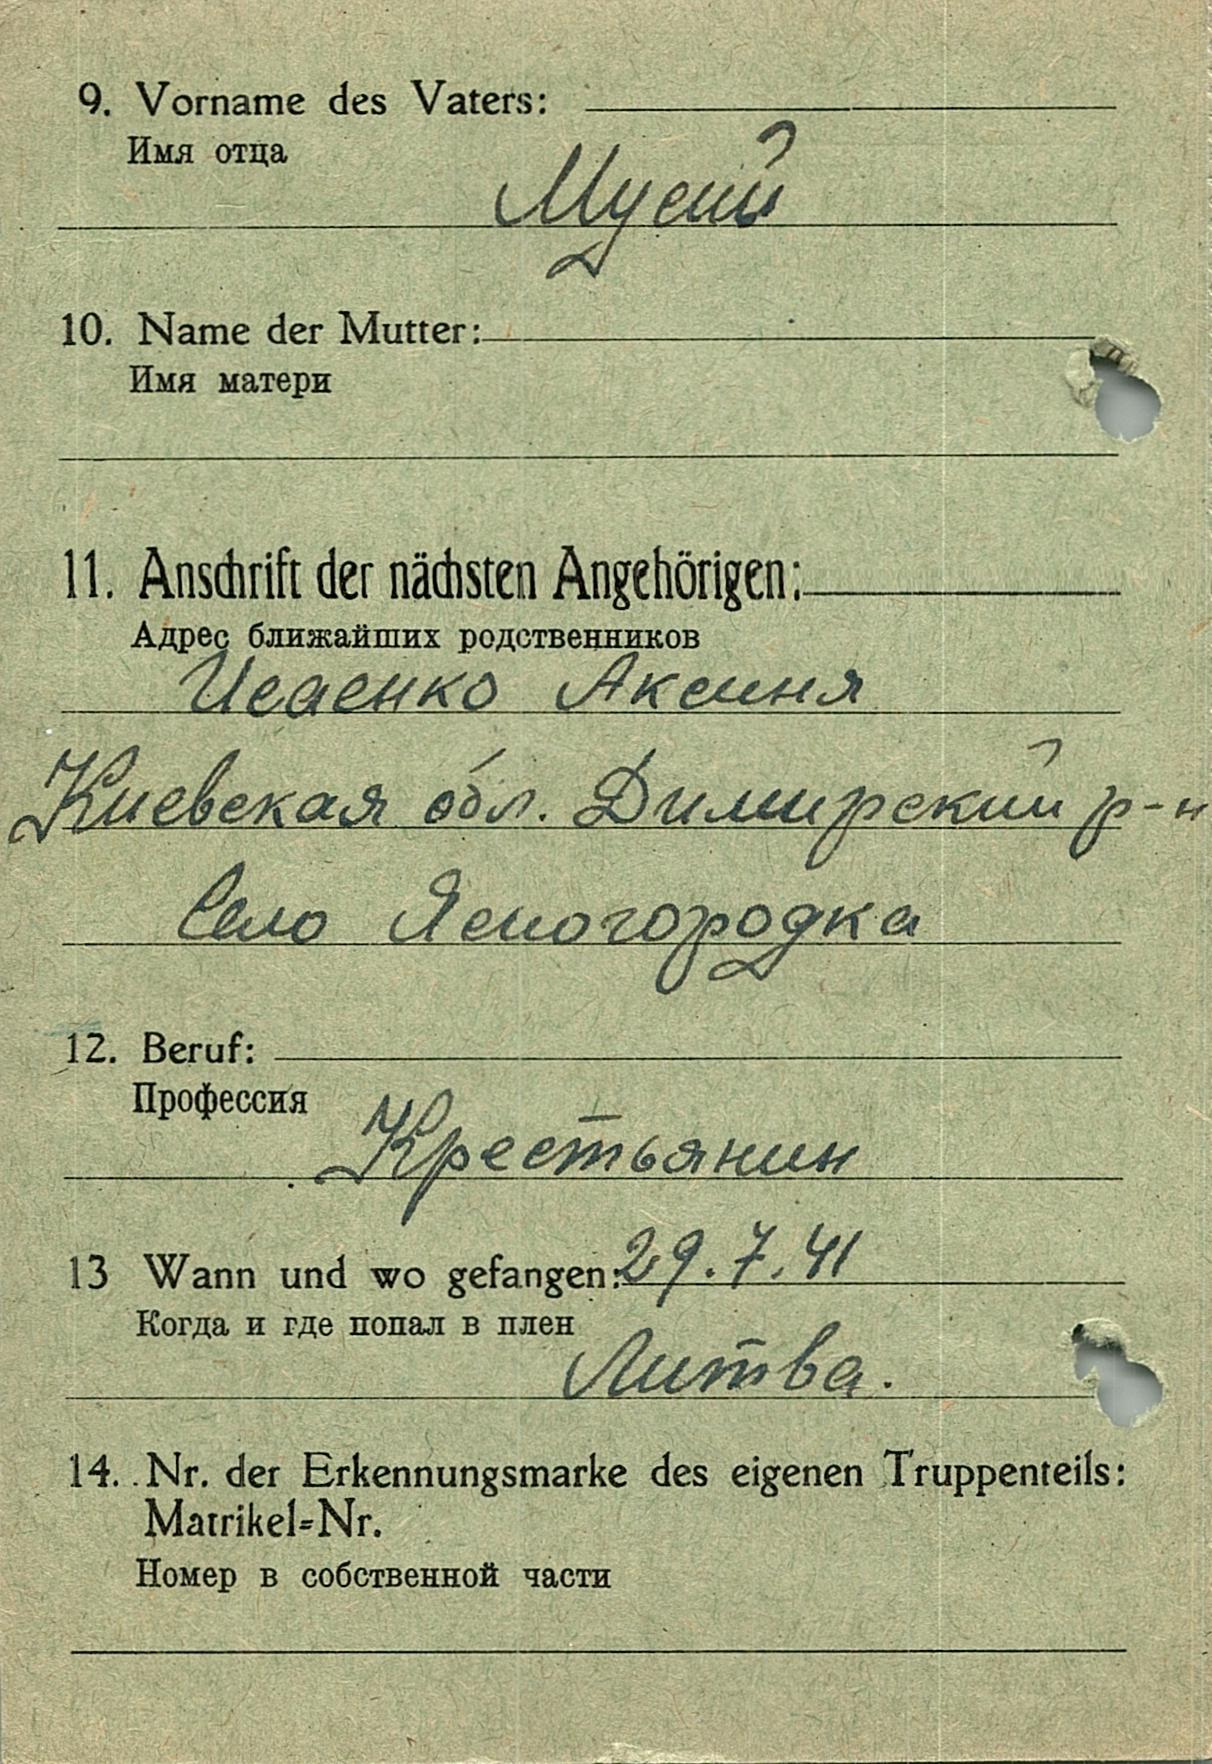 9. Vorname des Vaters:
Имя отца
Мусий
10. Name der Mutter:
Имя матери
11. Anschrift der nächsten Angehörigen:
Адрес ближайших родственников
Исаенко Аксиня
Киевская обл. Димирский р-н
Село Ясногородка
12. Beruf:
Профессия
Крестьянин
13 Wann und wo gefangen: 29.7.41
Когда и где попал в плен
Литва.
14. Nr. der Erkennungsmarke des eigenen Truppenteils:
Matrikel-Nr.
Номер в собственной части